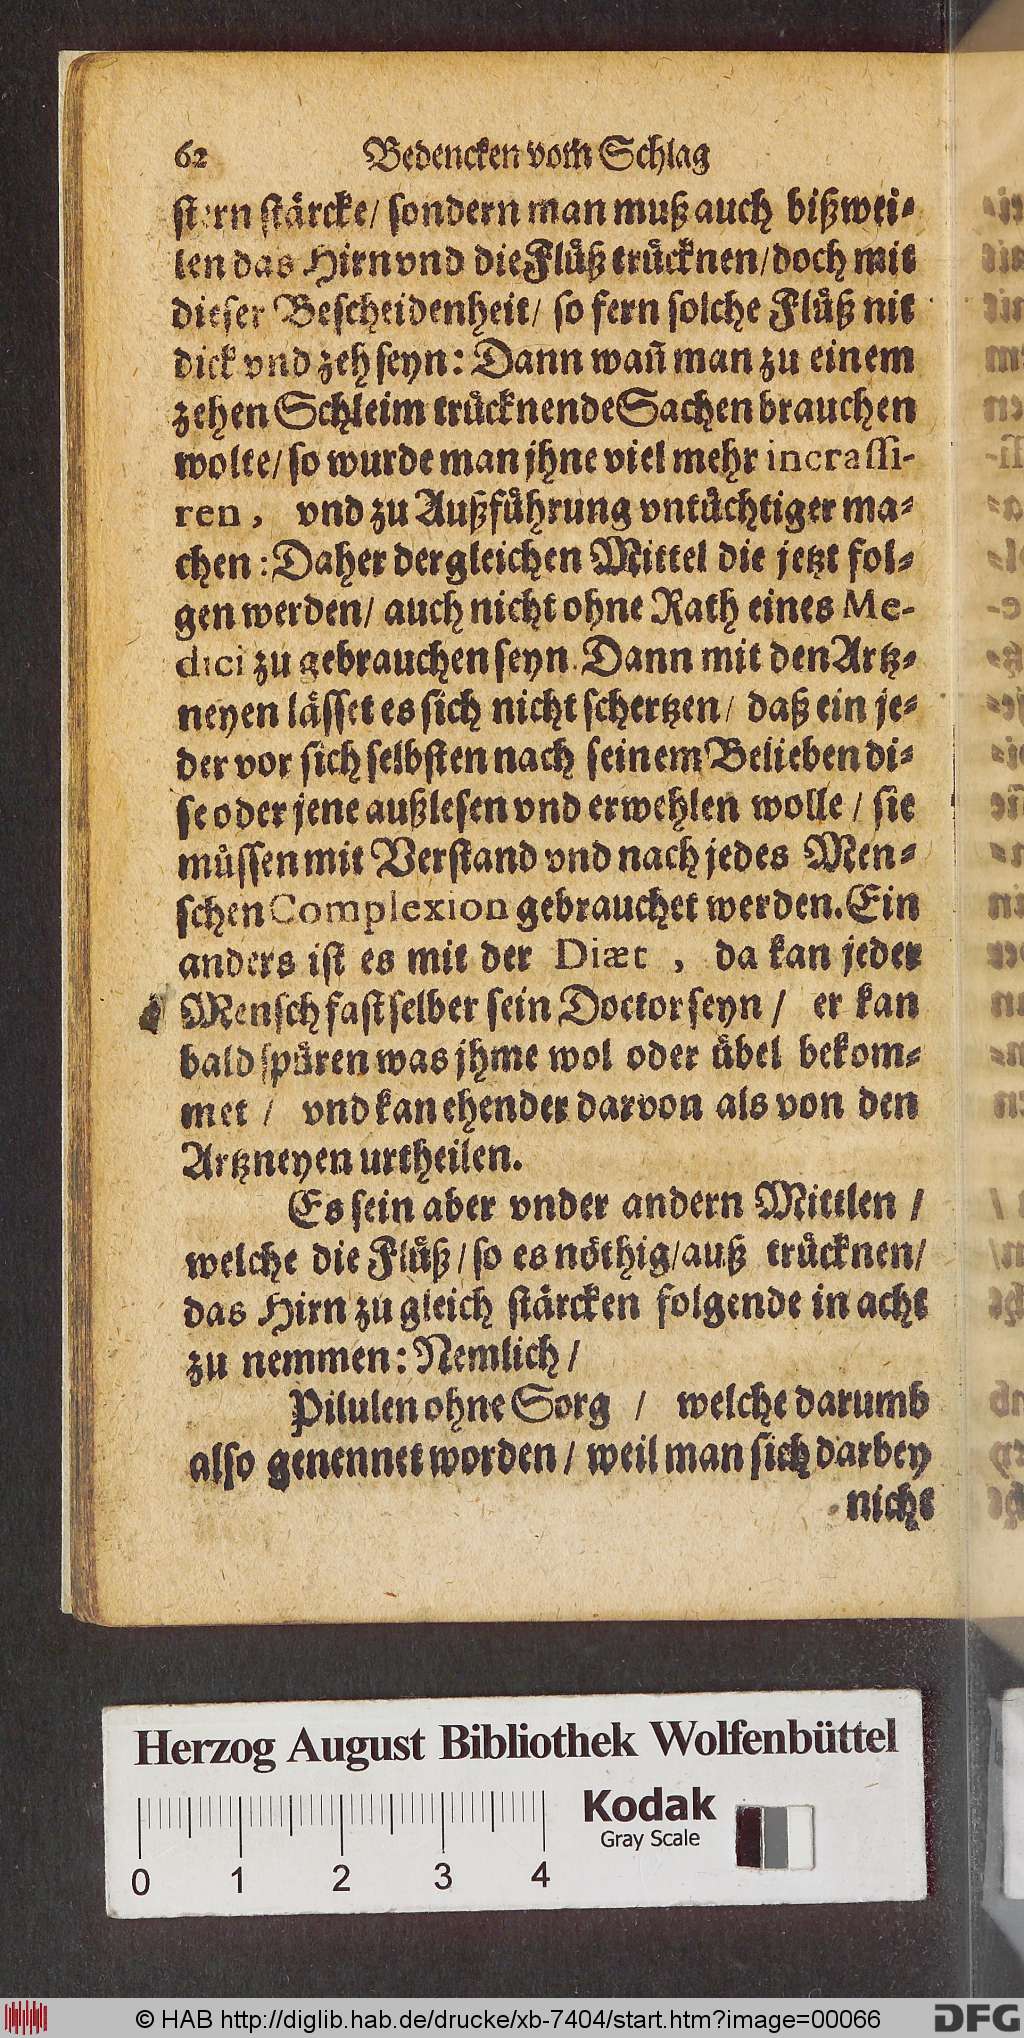 62 Bedencken vom Schlag
stern stärcke/ sondern man muß auch bißwei-
len das Hirn vnd die Flůß trůcknen/ doch mit
dieser Bescheidenheit/ so fern solche Flůß nit
dick vnd zeh seyn: Dann wañ man zu einem
zehen Schleim trůcknende Sachen brauchen
wolte/ so wurde man jhne viel mehr incrassi-
ren, vnd zu Außfůhrung vntůchtiger ma-
chen: Daher dergleichen Mittel die jetzt fol-
gen werden/ auch nicht ohne Rath eines Me-
dici zu gebrauchen seyn. Dann mit den Artz-
neyen lässet es sich nicht schertzen/ daß ein je-
der vor sich selbsten nach seinem Belieben di-
se oder jene außlesen vnd erwehlen wolle / sie
můssen mit Verstand vnd nach jedes Men-
schen Complexion gebrauchet werden. Ein
anders ist es mit der Diæt , da kan jeder
Mensch fast selber sein Doctor seyn / er kan
bald spůren was jhme wol oder ůbel bekom-
met / vnd kan ehender darvon als von den
Artzneyen urtheilen.
Es sein aber vnder andern Mittlen /
welche die Flůß/ so es nöthig/ auß trůcknen/
das Hirn zu gleich stärcken folgende in acht
zu nemmen: Nemlich /
Pilulen ohne Sorg / welche darumb
also genennet worden / weil man sich darbey
nicht
Herzog August Bibliothek Wolfenbüttel
Kodak
Gray Scale
0 1 2 3 4
© HAB http://diglib.hab.de/drucke/xb-7404/start.htm?image=00066
DFG